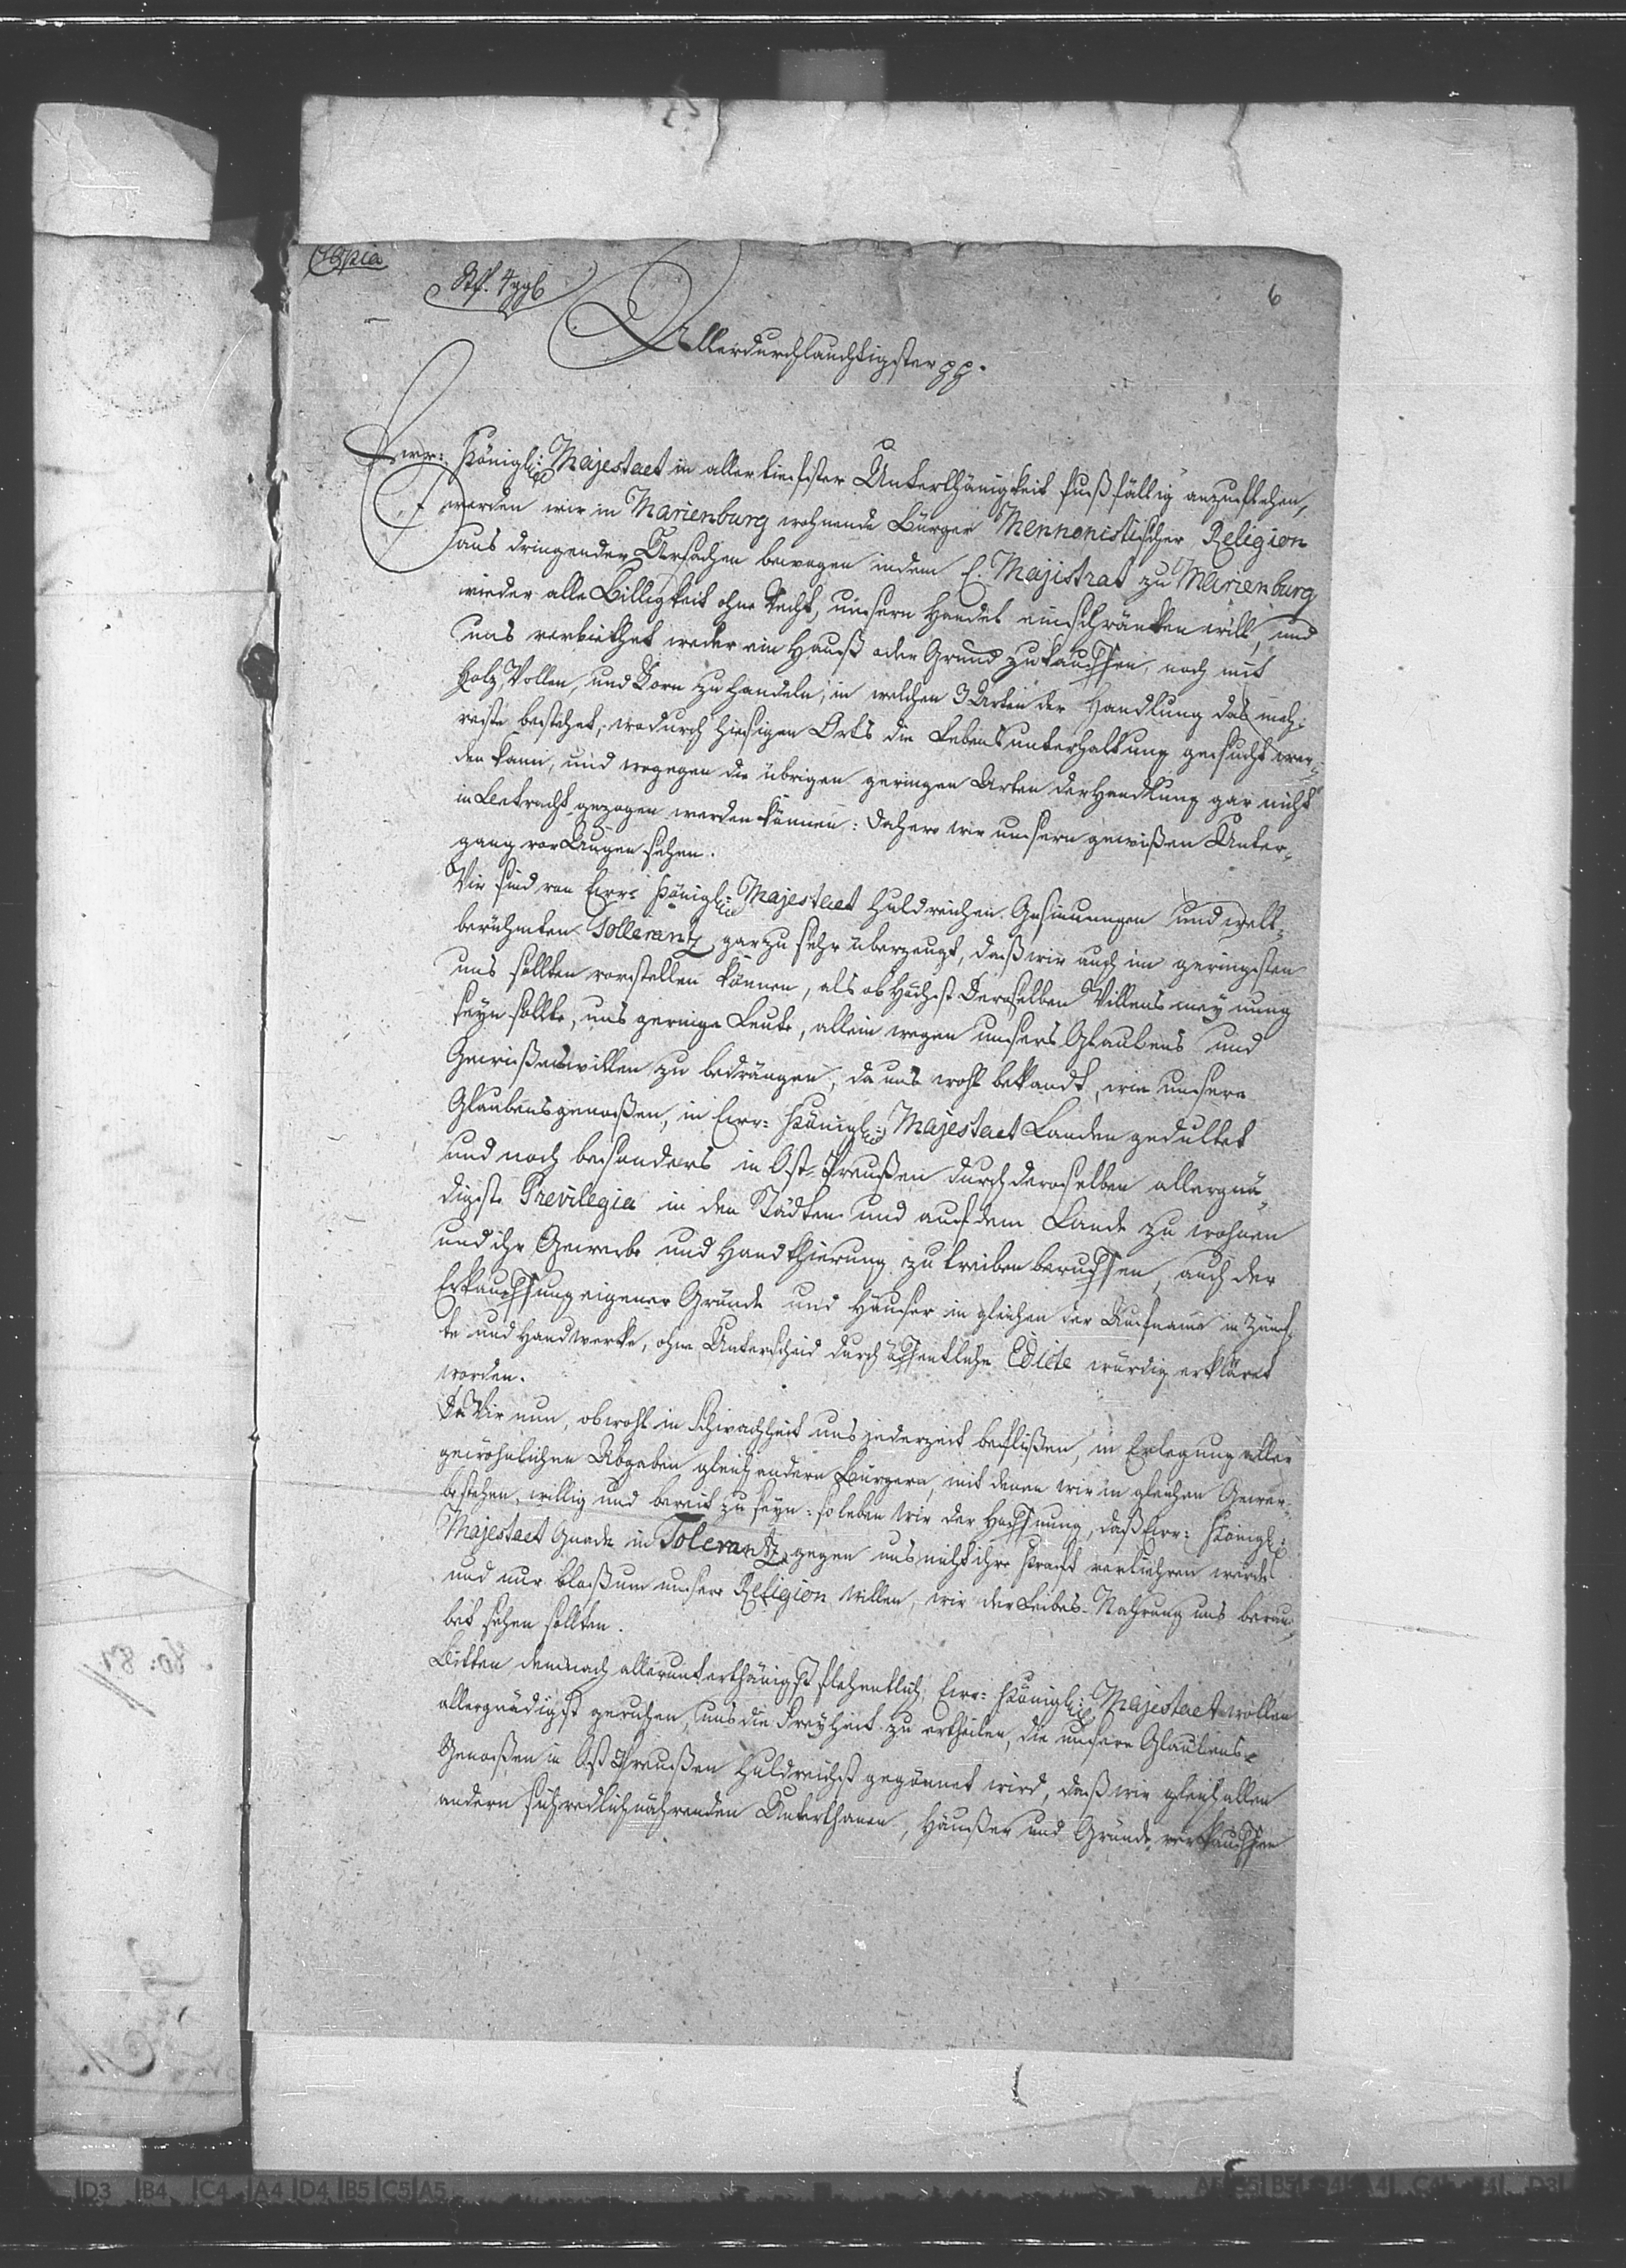 Copia
Stf. 4 ggl
6
Allerdurchlauchtigster pp.
Ewr: Königl: Majestaet in aller tiefster Unterthänigkeit fußfällig anzuflehen,
werden wir in Marienburg wohnende Bürger Mennonistischer Religion
aus dringenden Ursachen bewogen indem E. Majistrat zu Marienburg
wieder alle Billigkeit ohne Recht, unsern Handel einschränken will, und
uns verbiethet weder ein Hauß oder Grund zu kauffen, noch mit
Holz, Wollen, und Korn zu handeln, in welchen 3 Arten der Handlung das meh-
reste bestehet, wodurch hiesigen Orts die Lebensunterhaltung gesucht wer-
den kann, und wogegen die übrigen geringen Arten der Handlung gar nicht
in Betracht gezogen werden können: Dahero wir unsern gewißen Unter-
gang vor Augen sehen.
Wir sind von Ewr: Königl: Majestaet Huldreichen Gesinnungen und welt-
berühmten Tollerantz gar zu sehr überzeugt, daß wir auch im geringsten
uns sollten vorstellen können, als ob Höchst Deroselben Willensmeynung
seyn sollte, uns geringe Leute, allein wegen unsers Glaubens und
Gewißenswillen zu bedrängen, da uns wohl bekandt, wie unsere
Glaubensgenoßen, in Ewr: Königl: Majestaet Landen gedultet
und noch besonders in Ost-Preußen durch deroselben allergnä-
digste Previlegia in den Städten und auf dem Lande zu wohnen
und ihr Gewerbe und Handthierung zu treiben beruffen, auch der
Erkauffung eigener Gründe und Häuser in gleichen der Aufname in Zünf-
te und Handwerke, ohne Unterscheid durch öffentliche Edicte würdig erkläret
worden.
Da Wir nun, obwohl in Schwachheit uns jederzeit beflißen, in Erlegung aller
gewöhnlichen Abgaben gleich andern Bürgern, mit denen wir in gleichen Gewer-
be stehen, willig und bereit zu seyn: so leben wir der Hoffnung, daß Ewr: Königl:
Majestaet Gnade in Tolerantz gegen uns nicht ihre Kraft verliehren werde
und nur bloß um unsere Religion willen, wir der Leibes-Nahrung uns berau-
bet sehen sollten.
Bitten demnach allerunterthänigst flehentlich Ewr: Königl: Majestaet wollen
allergnädigst geruhen, uns die Freyheit zu ertheilen, die unsern Glaubens-
Genoßen in Ost Preußen Huldreichst gegönnet wird, daß wir gleich allen
andern sich redlich nährenden Unterthanen, Häußer und Gründe erkauffen